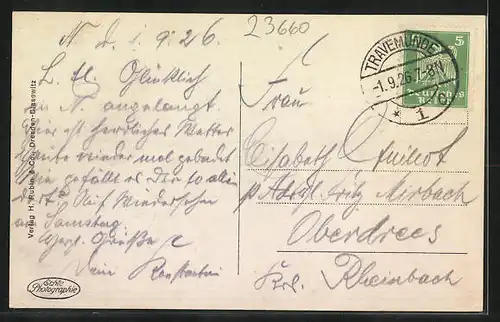 23660
N. d. 1. 9. 26
L. M. Glücklich
in N. angelangt.
Hier ist herrliches Wetter
Heute wieder mal gebadet
Wie gefällt es Dir so allein
dort? Auf Wiedersehn
am Samstag
Herzl. Grüße
Dein Konstantin
Verlag H. Rubin & Co., Dresden-Blasewitz
Echte
Photographie
TRAVEMÜNDE
-1.9.26.7-8N
* 1
5
Deutsches
Reich
Frau
Elisabeth
p Adr. Fritz Mirbach
Oberdrees
Krs. Rheinbach